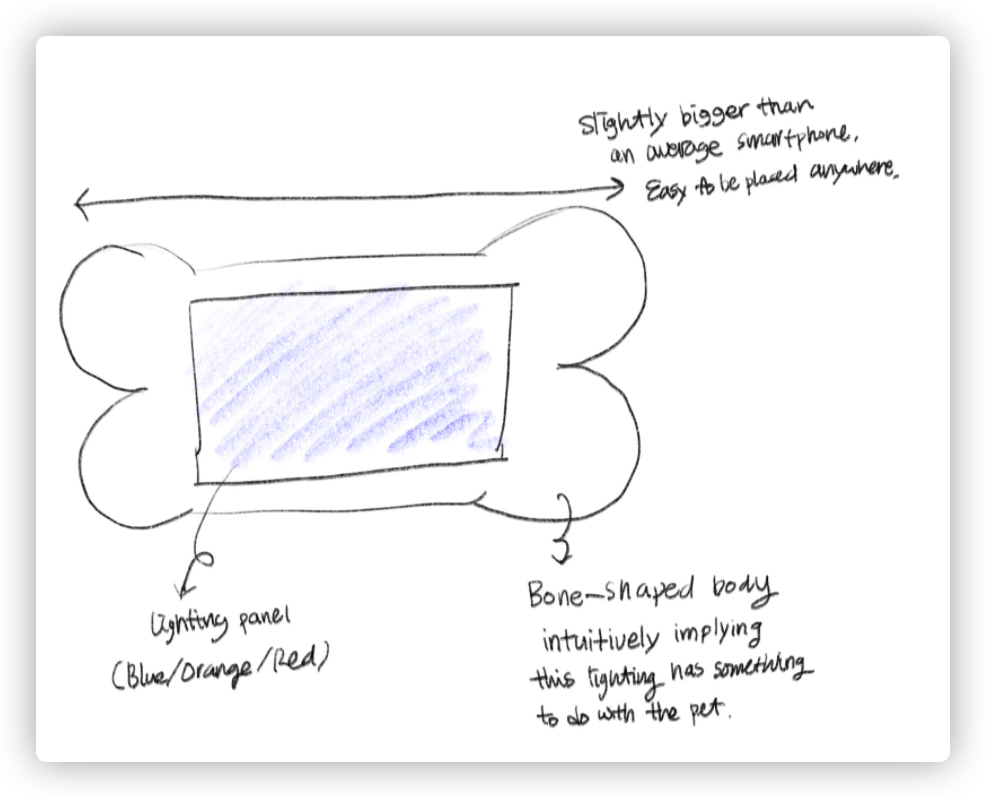 Slightly bigger than
an average smartphone.
Easy to be placed anywhere.
Lighting panel
(Blue/Orange/Red)
Bone-shaped body
intuitively implying
this lighting has something
to do with the pet.